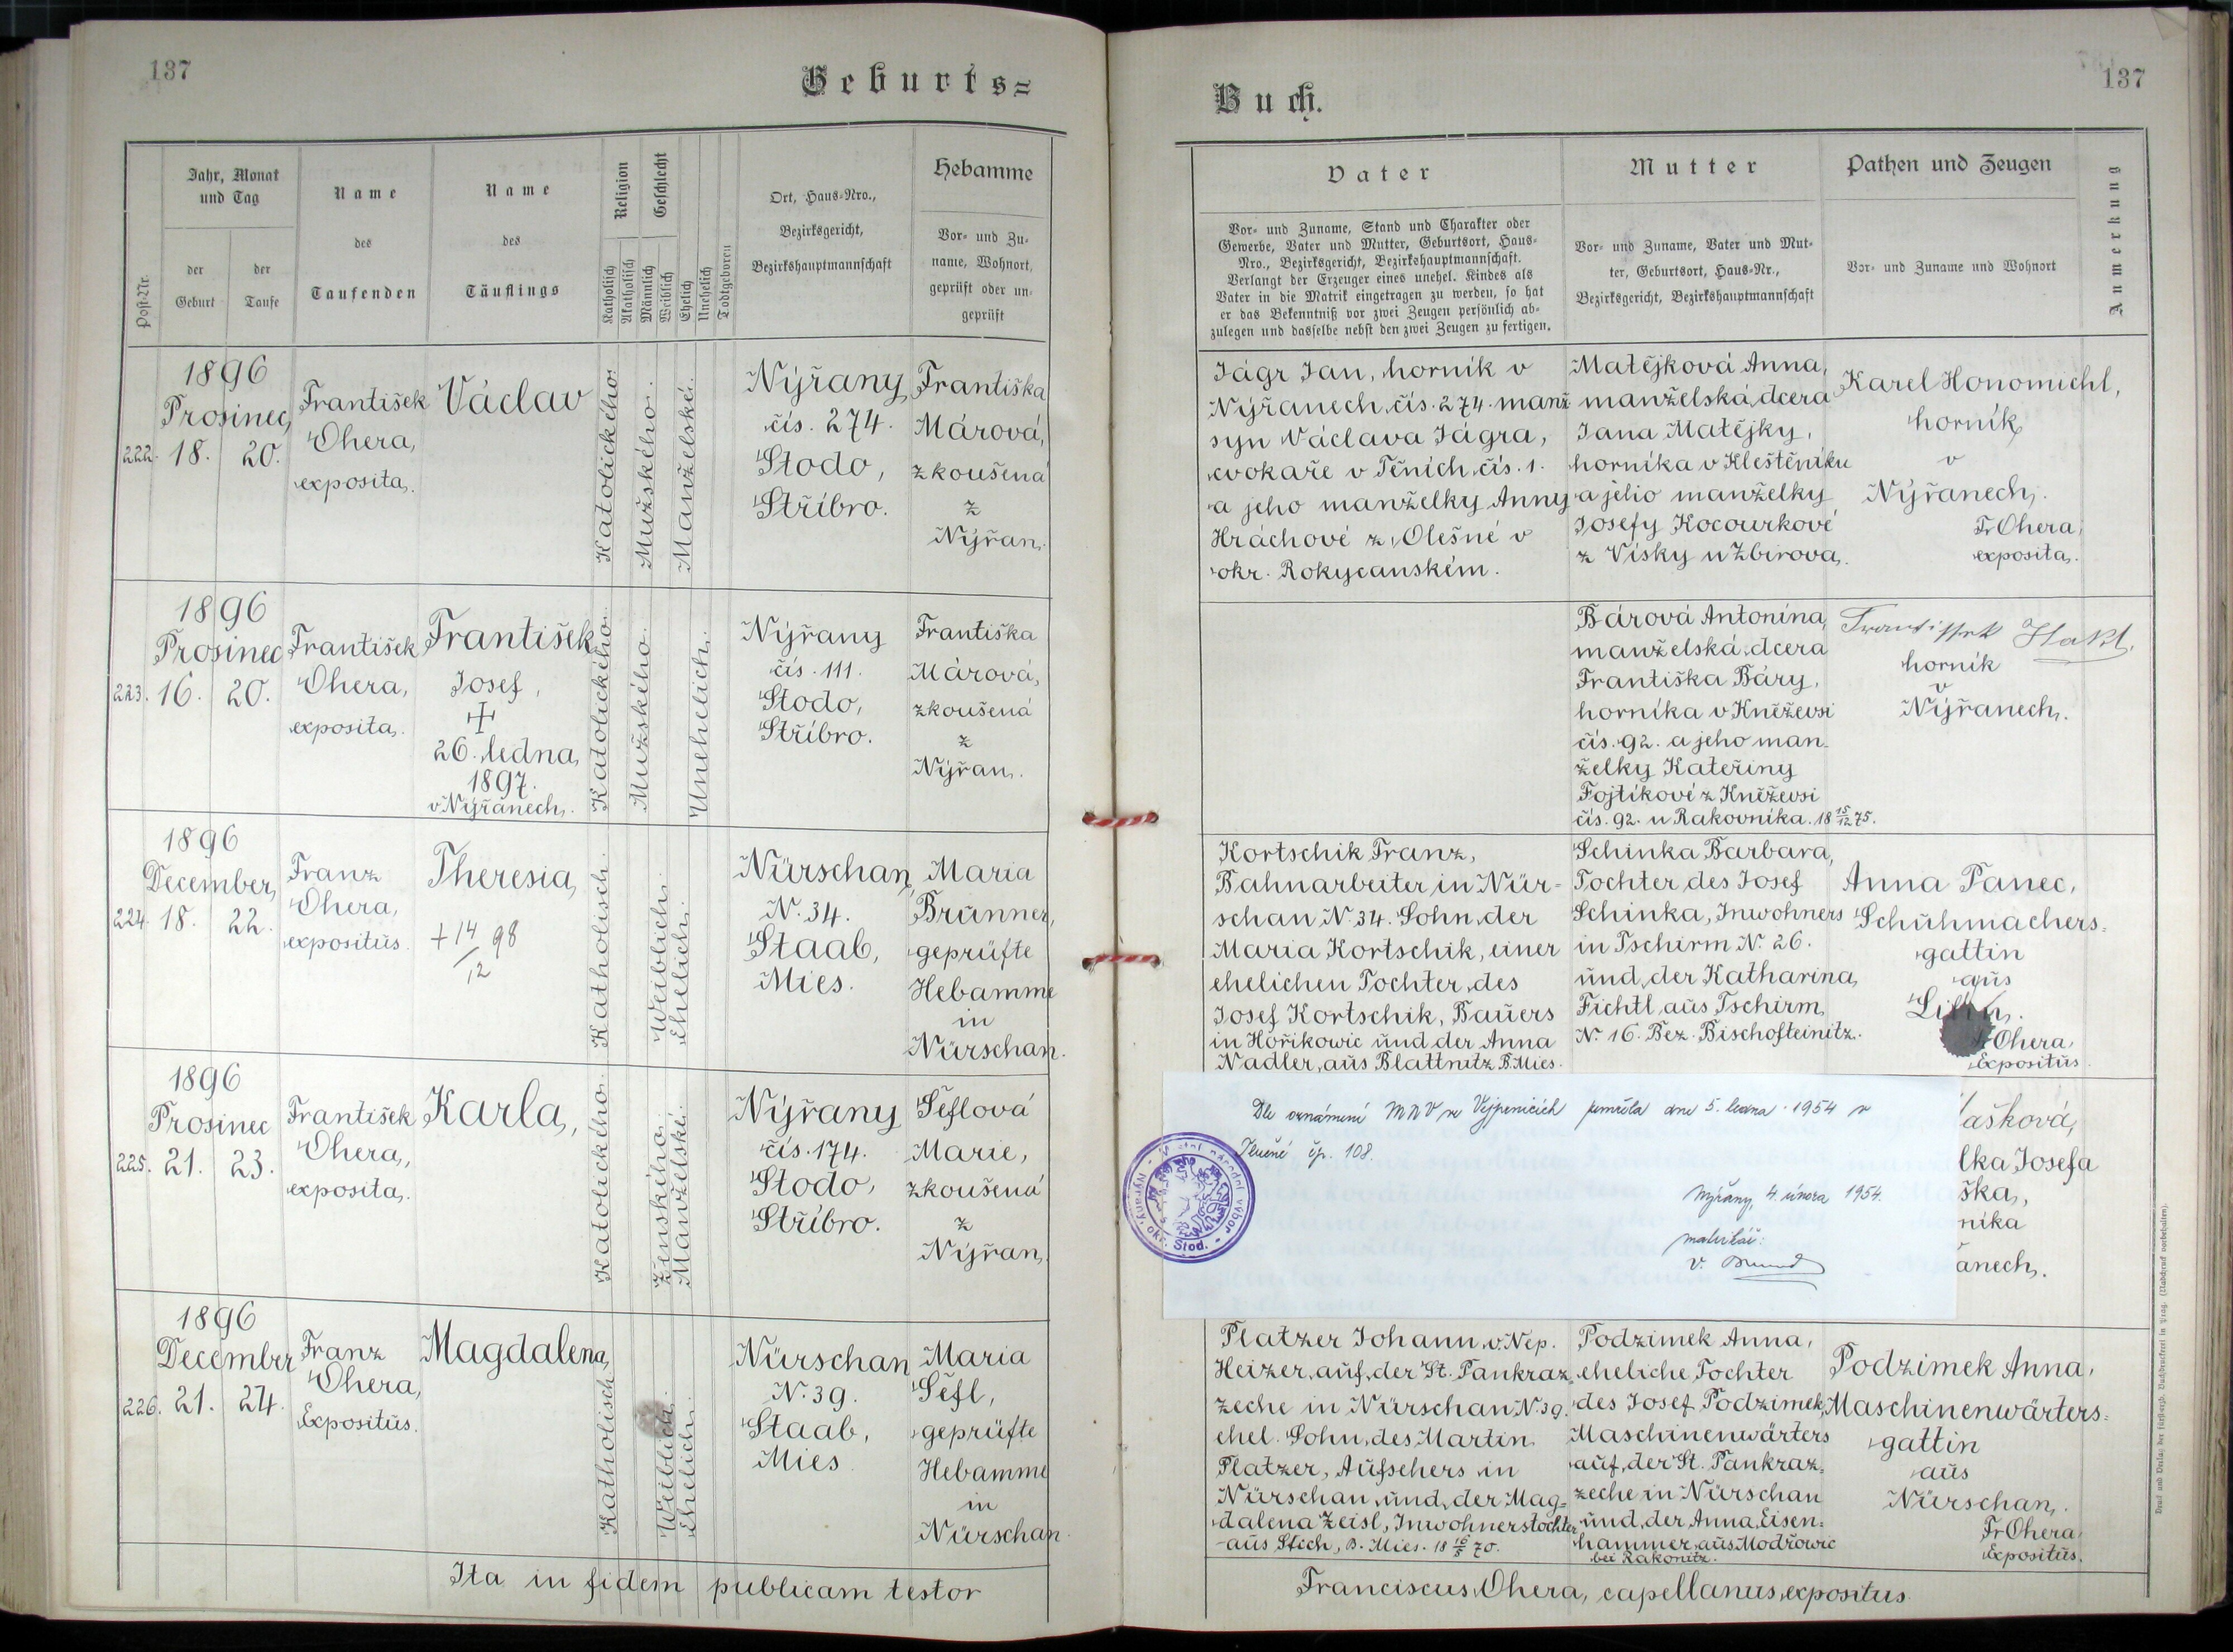 137
Geburts=
Jahr, Monat
und Tag
der
Geburt
der
Taufe
Post-Nr.
Name
des
Taufenden
Name
des
Täuflings
Religion
Katholisch
Akatholisch
Geschlecht
Männlich
Weiblich
Ehelich
Unehelich
Todtgeboren
Ort, Haus-Nro.,
Bezirksgericht,
Bezirkshauptmannschaft
Hebamme
Vor- und Zu-
name, Wohnort,
geprüft oder un-
geprüft
1896
Prosinec
222. 18. 20.
František
Ohera,
exposita.
Václav
Katolického.
Mužského.
Manželské.
Nýřany
čís. 274.
Stodo,
Stříbro.
Františka
Márová,
zkoušená
z
Nýřan.
1896
Prosinec
223. 16. 20.
František
Ohera,
exposita.
František
Josef,
+
26. ledna
1897.
v Nýřanech.
Katolického.
Mužského.
Unehelich.
Nýřany
čís. 111.
Stodo,
Stříbro.
Františka
Márová,
zkoušená
z
Nýřan.
1896
December
224. 18. 22.
Franz
Ohera,
expositus.
Theresia
+ 14/12 98
Katholisch.
Weiblich.
Ehelich.
Nürschan
N. 34.
Staab,
Mies.
Maria
Brunner,
geprüfte
Hebamme
in
Nürschan.
1896
Prosinec
225. 21. 23.
František
Ohera,
exposita.
Karla,
Katolického.
Ženského.
Manželské.
Nýřany
čís. 174.
Stodo,
Stříbro.
Šeflová
Marie,
zkoušená
z
Nýřan.
1896
December
226. 21. 24.
Franz
Ohera,
Expositus.
Magdalena
Katholisch.
Weiblich.
Ehelich.
Nürschan
N. 39.
Staab,
Mies
Maria
Šefl,
geprüfte
Hebamme
in
Nürschan.
Ita in fidem publicam testor
137
Buch.
Vater
Vor- und Zuname, Stand und Charakter oder
Gewerbe, Vater und Mutter, Geburtsort, Haus-
Nro., Bezirksgericht, Bezirkshauptmannschaft.
Verlangt der Erzeuger eines unehel. Kindes als
Vater in die Matrik eingetragen zu werden, so hat
er das Bekenntniß vor zwei Zeugen persönlich ab-
zulegen und dasselbe nebst den zwei Zeugen zu fertigen.
Mutter
Vor- und Zuname, Vater und Mut-
ter, Geburtsort, Haus-Nr.,
Bezirksgericht, Bezirkshauptmannschaft
Pathen und Zeugen
Vor- und Zuname und Wohnort
Anmerkung
Jágr Jan, horník v
Nýřanech čís. 274. manž
syn Václava Jágra,
cvokaře v Těních čís. 1.
a jeho manželky Anny
Hráchové z Olešné v
okr. Rokycanském.
Matějková Anna,
manželská dcera
Jana Matějky,
horníka v Kleštěníku
a jeho manželky
Josefy Kocourkové
z Vísky u Zbirova.
Karel Honomichl,
horník
v
Nýřanech.
Fr Ohera,
exposita.
Bárová Antonína,
manželská dcera
Františka Báry,
horníka v Kněževsi
čís. 92. a jeho man-
želky Kateřiny
Fojtíkové z Kněževsi
čís. 92. u Rakovníka. 18 15/12 75.
Hakl,
horník
v
Nýřanech.
Kortschik Franz,
Bahnarbeiter in Nür-
schan N. 34. Sohn der
Maria Kortschik, einer
ehelichen Tochter des
Josef Kortschik, Bauers
in Hořikowic und der Anna
Nadler, aus Blattnitz B. Mies.
Schinka Barbara,
Tochter des Josef
Schinka, Inwohners
in Tschirm N. 26.
und der Katharina
Fichtl aus Tschirm
N. 16. Bez. Bischofteinitz.
Anna Panec,
Schuhmachers-
gattin
aus
Fr Ohera,
Expositus.
Dle oznámení MNV ve Vejprnicích zemřela dne 5. ledna 1954 v
čp. 108.
Nýřany, 4. února 1954.
matrikář:
V.
Místní národní výbor
Nýřany, okr. Stod.
ašková,
lka Josefa
ška,
níka
anech.
Platzer Johann v. Nep.
Heizer auf der St. Pankraz
zeche in Nürschan N. 39.
ehel. Sohn des Martin
Platzer, Aufsehers in
Nürschan und der Mag=
dalena Zeisl, Inwohnerstochter
aus Stich, B. Mies. 18 16/5 70.
Podzimek Anna,
eheliche Tochter
des Josef Podzimek,
Maschinenwärters
auf der St. Pankraz=
zeche in Nürschan
und der Anna Eisen=
hammer aus Modřowic
bei Rakonitz.
Podzimek Anna,
Maschinenwärters=
gattin
aus
Nürschan.
Fr Ohera
Expositus.
Franciscus Ohera, capellanus expositus.
Druck und Verlag der fürsterzb. Buchdruckerei in Prag. (Nachdruck vorbehalten).